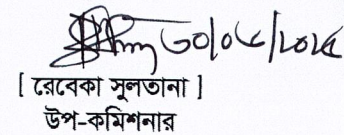 ৩০/০৬/২০২৫
[ রেবেকা সুলতানা ]
উপ-কমিশনার